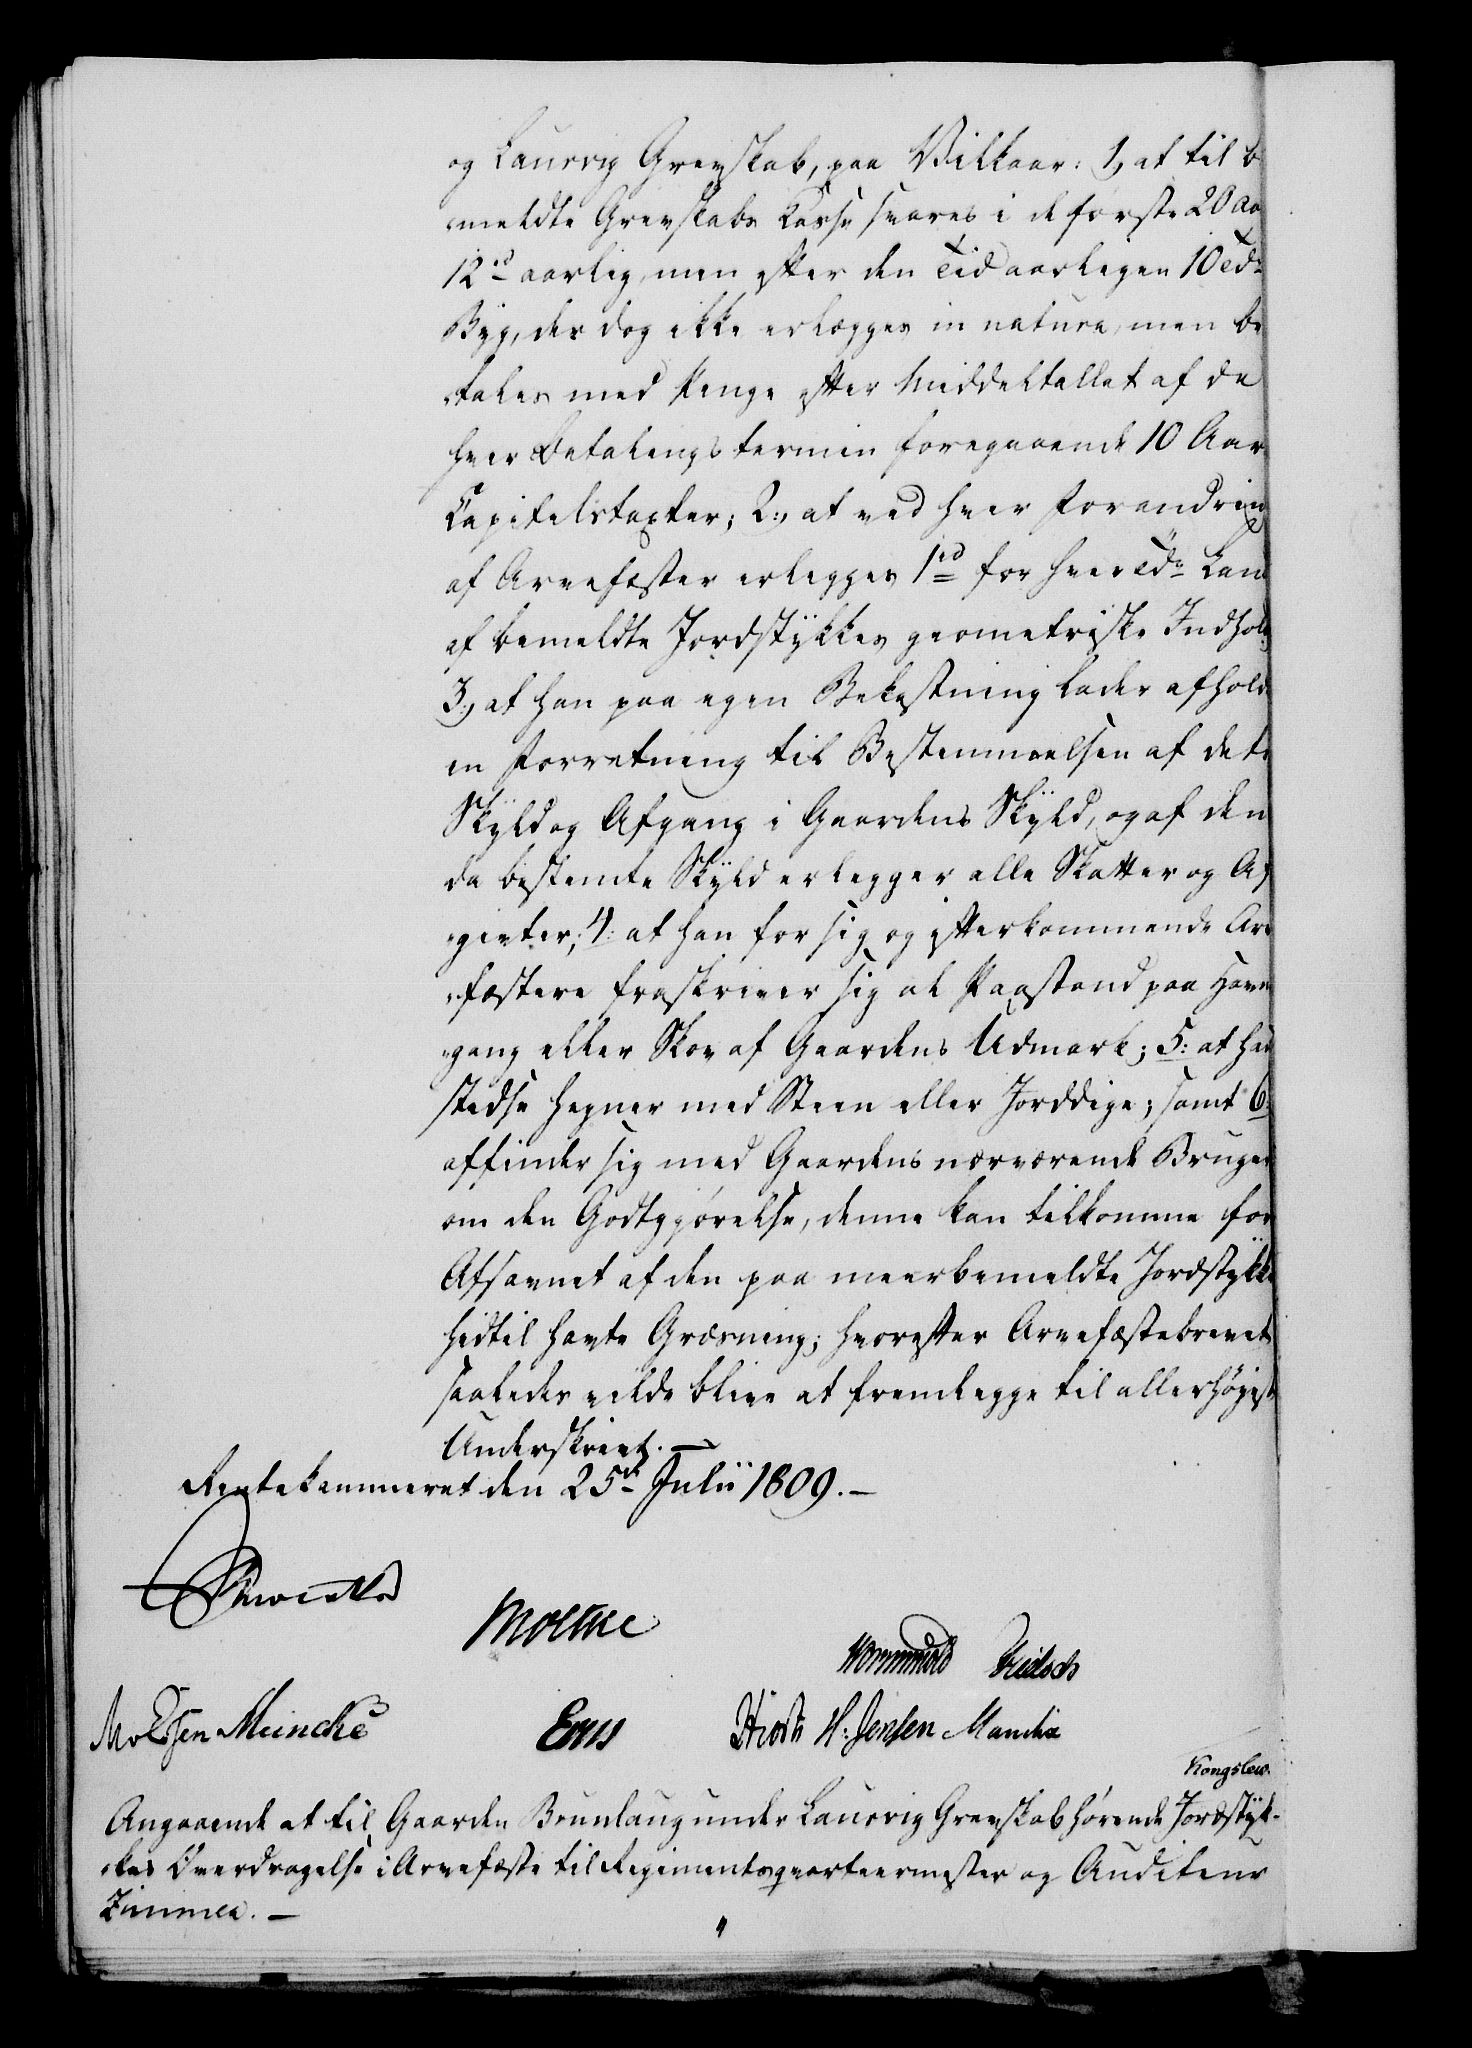 og Laurvig Grevskab, paa Vilkaar: 1, at til be
meldte Grevskabs Casse svares i de første 20 Aa
12 rd aarlig, men efter den Tid aarligen 10 Tdr
Byg, der dog ikke erlægges in natura, men be
tales med Penge efter Middeltallet af de
hver Betalings termin foregaaende 10 Aar
Capitelstaxter; 2:, at ved hver Forandring
af Arvefæster erlegges 1 rd for hver Tde Land
af bemeldte Jordstykkes geometriske Indhold
3:, at han paa egen Bekostning lader afholde
en Forretning til Bestemmelsen af dets
Skyld og Afgang i Gaardens Skyld, og af den
da bestemte Skyld erlegger alle Skatter og Af
givter; 4: at han for sig og efterkommende Arve
fæstere fraskriver sig al Paastand paa Havne
gang eller Skov af Gaardens Udmark; 5: at han
stedse hegner med Steen eller Jorddige; samt 6:
affinder sig med Gaardens nærværende Bruger
om den Godtgjørelse, denne kan tilkomme for
Afsavnet af den paa meerbemeldte Jordstykke
hidtil havte Græsning; hvorefter Arvefæstebrevet
saaledes vilde blive at fremlegge til allerhøjeste
Underskrivt. —
Rentekammeret den 25de Julii 1809. —
Moltke
Wormskiold
Meincke
Hiorth H: Jensen Manthe
Kongslew.
Angaaende at til Gaarden Brunlaug under Laurvig Grevskab hørende Jordstyk-
kes Overdragelse i Arvefæste til Regimentsqvarteermester og Auditeur
Zimmer. —